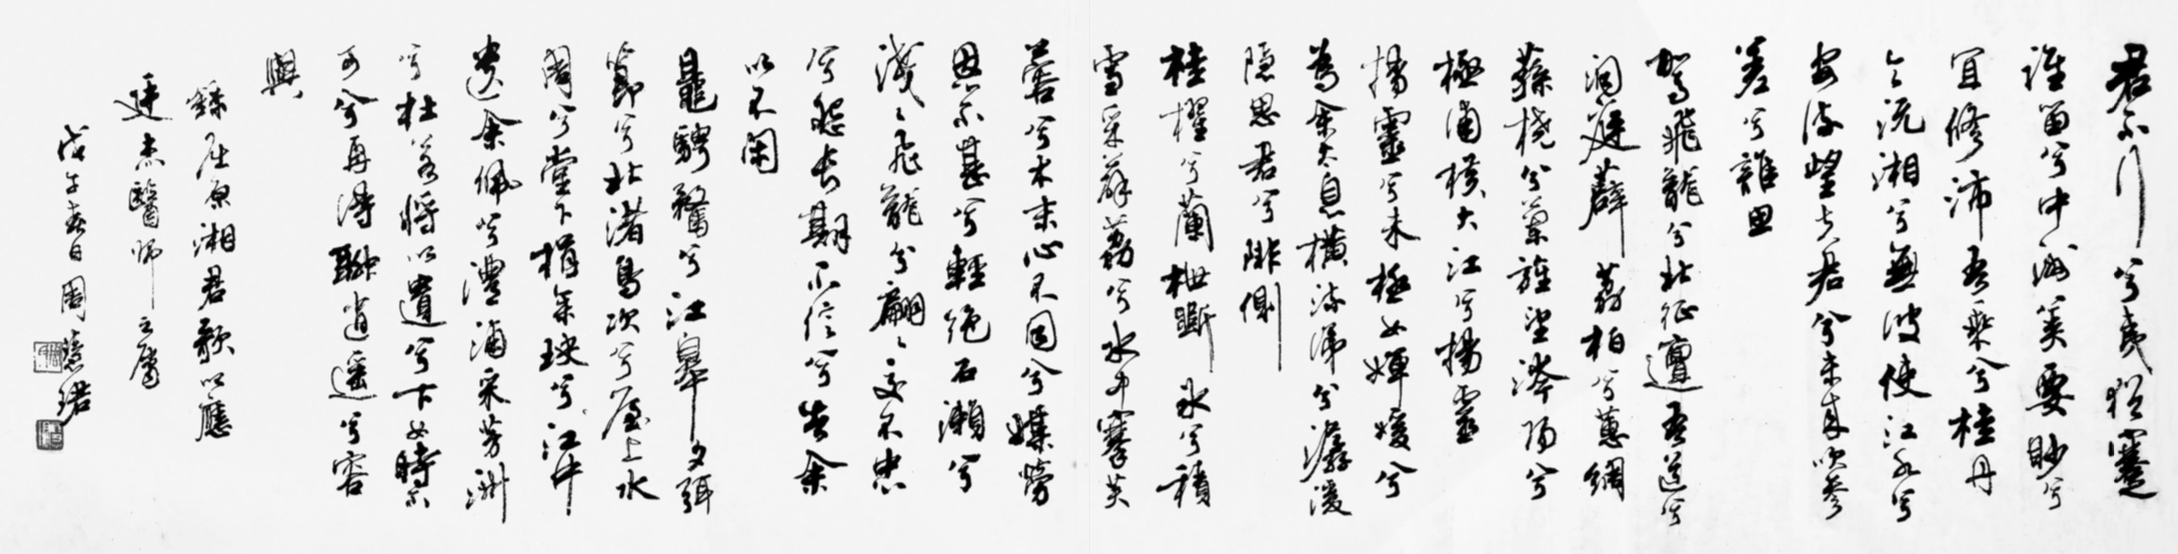 君不行兮夷猶蹇
誰留兮中洲美要眇兮
宜修沛吾乘兮桂舟
令沅湘兮無波使江水兮
安流望夫君兮未來吹參
差兮誰思
駕飛龍兮北征邅吾道兮
洞庭薜荔柏兮蕙綢
蓀橈兮蘭旌望涔陽兮
極浦橫大江兮揚靈
揚靈兮未極女嬋媛兮
為余太息橫流涕兮潺湲
隱思君兮陫側
桂櫂兮蘭枻斲冰兮積
雪采薜荔兮水中搴芙
蓉兮木末心不同兮媒勞
恩不甚兮輕絕石瀨兮
淺淺飛龍兮翩翩交不忠
兮怨長期不信兮告余
以不閒
鼂騁騖兮江皋夕弭
節兮北渚鳥次兮屋上水
周兮堂下捐余玦兮江中
遺余佩兮澧浦采芳洲
兮杜若將以遺兮下女時不
可兮再得聊逍遙兮容
與
錄屈原湘君歌以應
廷杰醫師之屬
戊午春日周慧珺